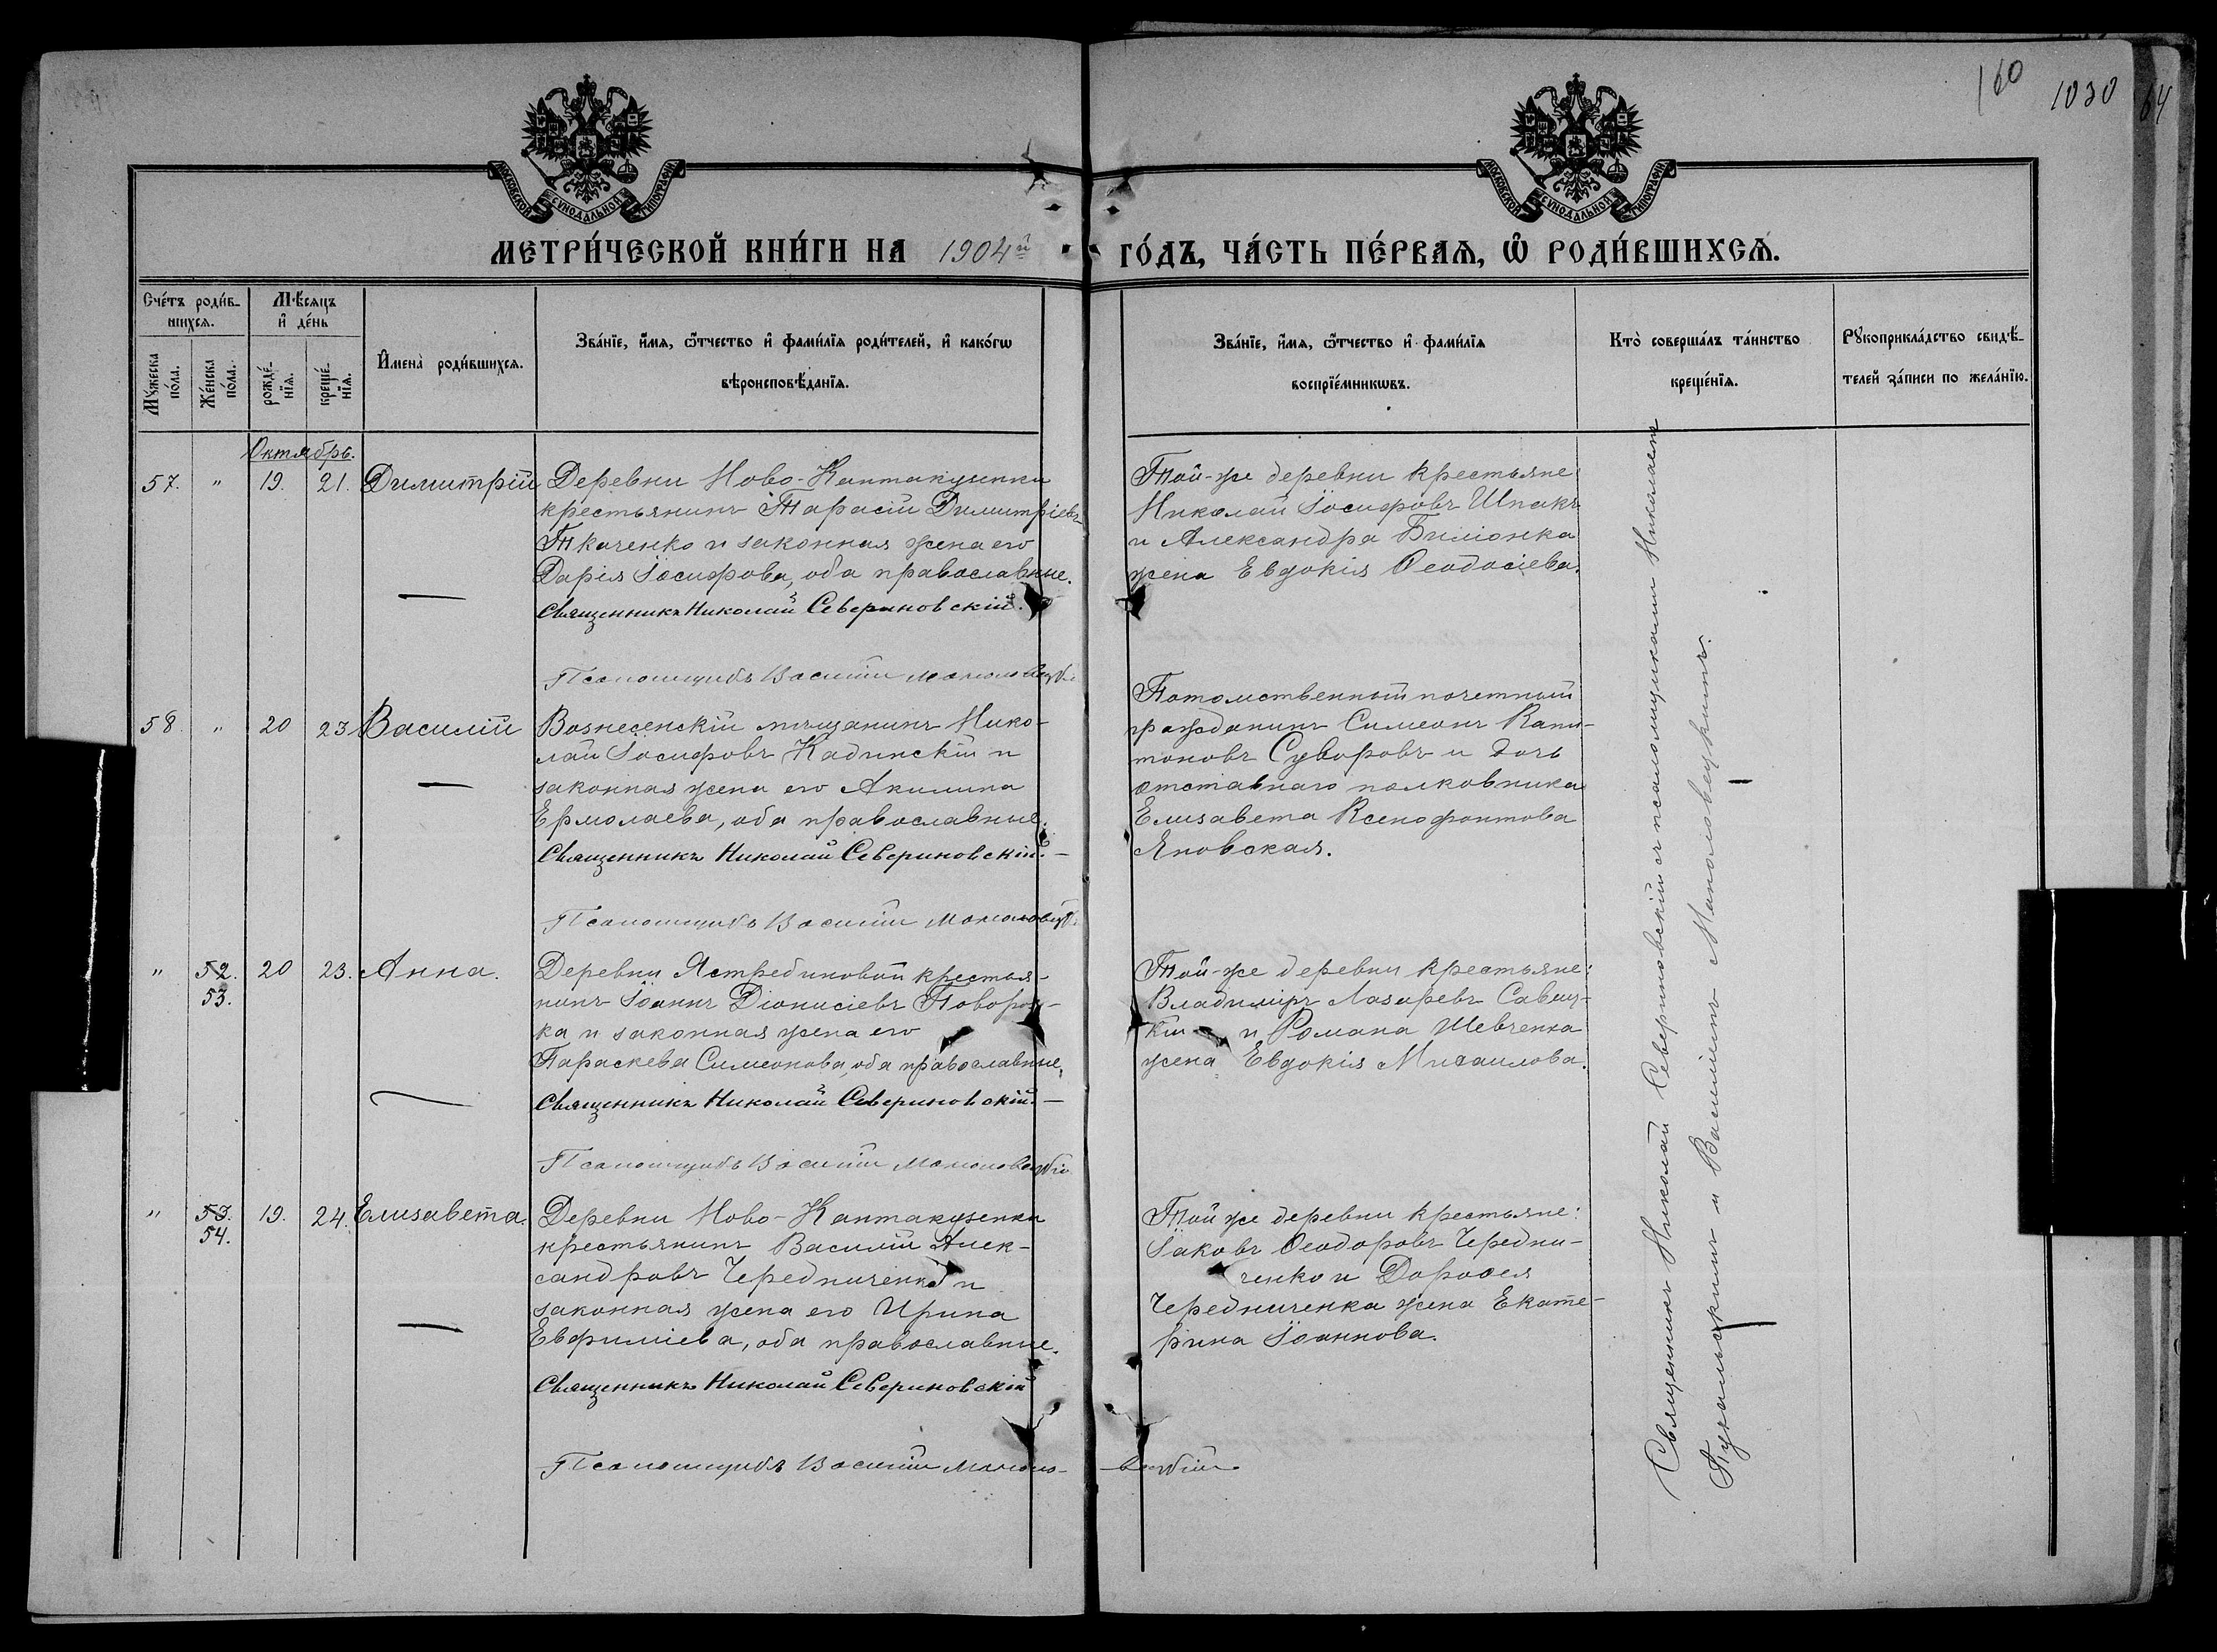 160 1030 64
МОСКОВСКОЙ СѴНОДАЛЬНОЙ ТИПОГРАФІИ
МОСКОВСКОЙ СѴНОДАЛЬНОЙ ТИПОГРАФІИ
МЕТРИ́ЧЕСКОЙ КНИ́ГИ НА 1904й ГО́ДЪ, ЧА́СТЬ ПЕ́РВАѦ, Ѽ РОДИ́ВШИХСѦ.
Сче́тъ роди́в-
шихсѧ.
Мѣ́сѧцъ
и҆ де́нь
Мꙋ́жеска
по́ла.
Же́нска
по́ла.
рожде́-
нїѧ.
креще́-
нїѧ.
И҆мена̀ роди́вшихсѧ.
Зва́нїе, и҆́мѧ, ѻ҆́тчество и҆ фами́лїѧ роди́телей, и҆ како́гѡ
вѣроисповѣ́данїѧ.
Зва́нїе, и҆́мѧ, ѻ҆́тчество и҆ фами́лїѧ
воспрїе́мникѡвъ.
Кто̀ соверша́лъ та́инство
креще́нїѧ.
Рꙋкоприкла́дство свидѣ́-
телей за́писи по жела́нїю.
Октябрь.
57. " 19. 21. Димитрій
Деревни Ново-Кантакузенки
крестьянинъ Тарасій Димитріевъ
Ткаченко и законная жена его
Дарія Іосифова, оба православные.
Священникъ Николай Севериновскій.
Псаломщикъ Василій Маноловецкій
Той-же деревни крестьяне:
Николай Іосифовъ Шпакъ
и Александра Билонка
жена Евдокія Ѳеодосіева.
58 " 20 23 Василій
Вознесенскій мѣщанинъ Нико-
лай Іосифовъ Кадинскій и
законная жена его Акилина
Ермолаева, оба православные.
Священникъ Николай Севериновскій.
Псаломщикъ Василій Маноловецкій
Потомственный почетный
гражданинъ Симеонъ Капи-
тоновъ Суворовъ и дочь
отставнаго полковника
Елисавета Ксенофонтова
Яновская.
" 52. 53. 20 23. Анна.
Деревни Ястребиновой крестья-
нинъ Іоаннъ Діонисіевъ
ка и законная жена его
Параскева Симеонова, оба православные.
Священникъ Николай Севериновскій.
Псаломщикъ Василій Маноловецкій
Той-же деревни крестьяне:
Владиміръ Лазаревъ Савиц-
кій и Романа Шевченка
жена Евдокія Михаилова.
" 53. 54. 19. 24. Елисавета.
Деревни Ново-Кантакузенки
крестьянинъ Василій Алек-
сандровъ Чередниченко и
законная жена его Ирина
Евфиміева, оба православные.
Священникъ Николай Севериновскій
Псаломщикъ Василій Маноло-
вецкій
Той же деревни крестьяне:
Іаковъ Ѳеодоровъ Чередни-
ченко и Дороѳея
Чередниченка жена Екате-
рина Іоаннова.
Священникъ Николай Севериновскій съ псаломщиками Николаемъ
и Василіемъ Маноловецкимъ.